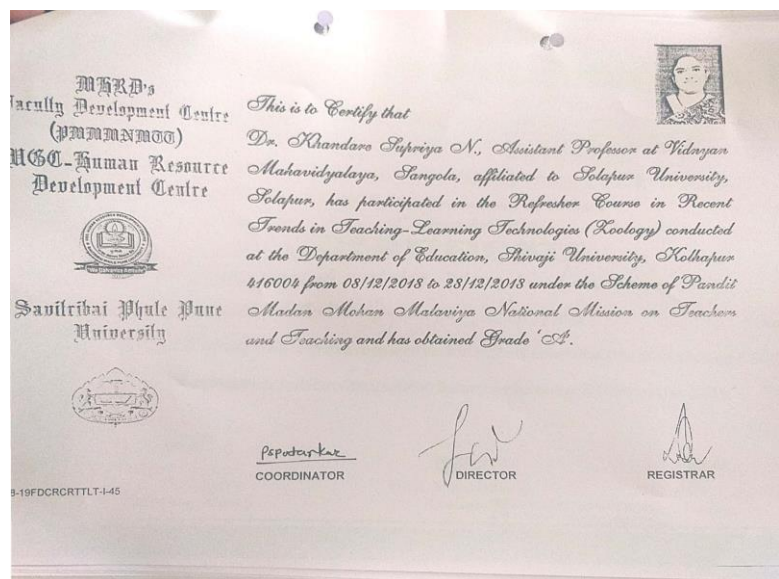 MHRD's
Faculty Development Centre
(PMMMNMTT)
UGC-Human Resource
Development Centre
Savitribai Phule Pune
University
This is to Certify that
Dr. Khandare Supriya N., Assistant Professor at Vidnyan
Mahavidyalaya, Sangola, affiliated to Solapur University,
Solapur, has participated in the Refresher Course in Recent
Trends in Teaching-Learning Technologies (Zoology) conducted
at the Department of Education, Shivaji University, Kolhapur
416004 from 08/12/2018 to 28/12/2018 under the Scheme of Pandit
Madan Mohan Malaviya National Mission on Teachers
and Teaching and has obtained Grade 'A'.
COORDINATOR
DIRECTOR
REGISTRAR
8-19FDCRCRTTLT-I-45